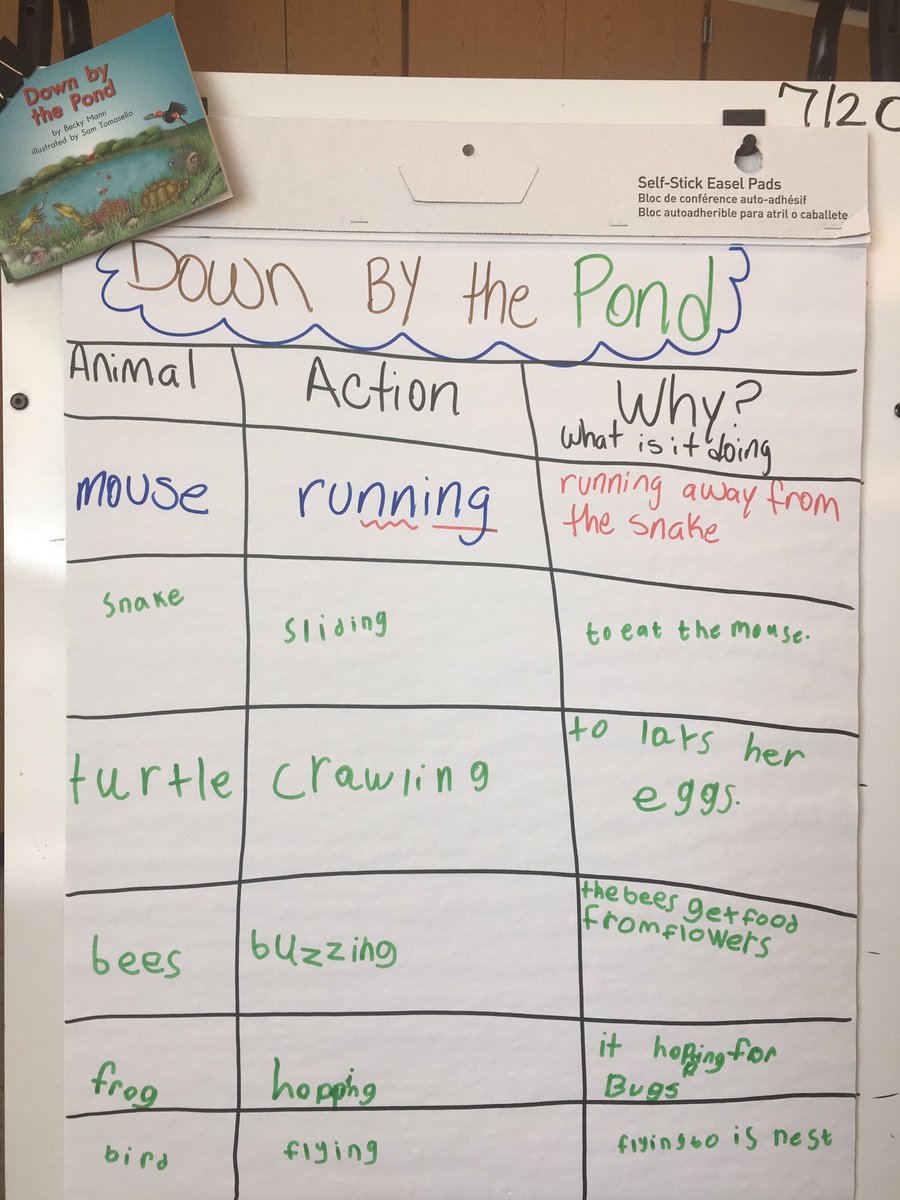 Down by
the Pond
by Becky Mann
illustrated by Sam Tomasello
7/20
Self-Stick Easel Pads
Bloc de conférence auto-adhésif
Bloc autoadherible para atril o caballete
Down By the Pond
Animal
Action
Why?
what is it doing
mouse
running
running away from
the snake
snake
sliding
to eat the mouse.
turtle
crawling
to lars her
eggs.
bees
buzzing
the bees get food
from flowers
frog
hopping
it hopping for
Bugs
bird
flying
flying to is nest